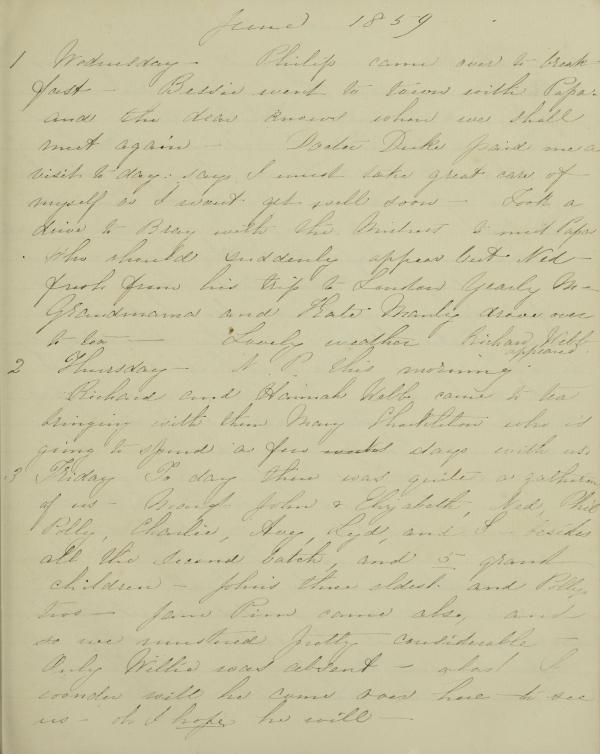 June 1859
1 Wednesday - Philip came over to break-
fast - Bessie went to town with Papa.
and the dear knows when we shall
meet again - Doctor Duke paid me a
visit to day. says I must take great care of
myself or I wont get well soon - Took a
drive to Bray with the to meet Papa
Who should suddenly appear but Ned -
fresh from his trip to London Yearly M-
Grandmama and Kate Manly drove over
to tea - Lovely weather Richard Webb
appeared.
2 Thursday - N. P. this morning
Richard and Hannah Webb came to tea
bringing with them Mary Shackleton who is
going to spend a few days with us
3 Friday To day there was quite a gathering
of us - John & Elizabeth, Ned, Phil
Polly, Charlie, Lyd, and I - besides
all the second batch, and 5 grand-
children - John's three eldest and Polly's
two - Jane Pim came also, and
so we mustered pretty considerable -
Only Willie was absent - alas! I
wonder will he come over here to see
us - oh I hope he will -